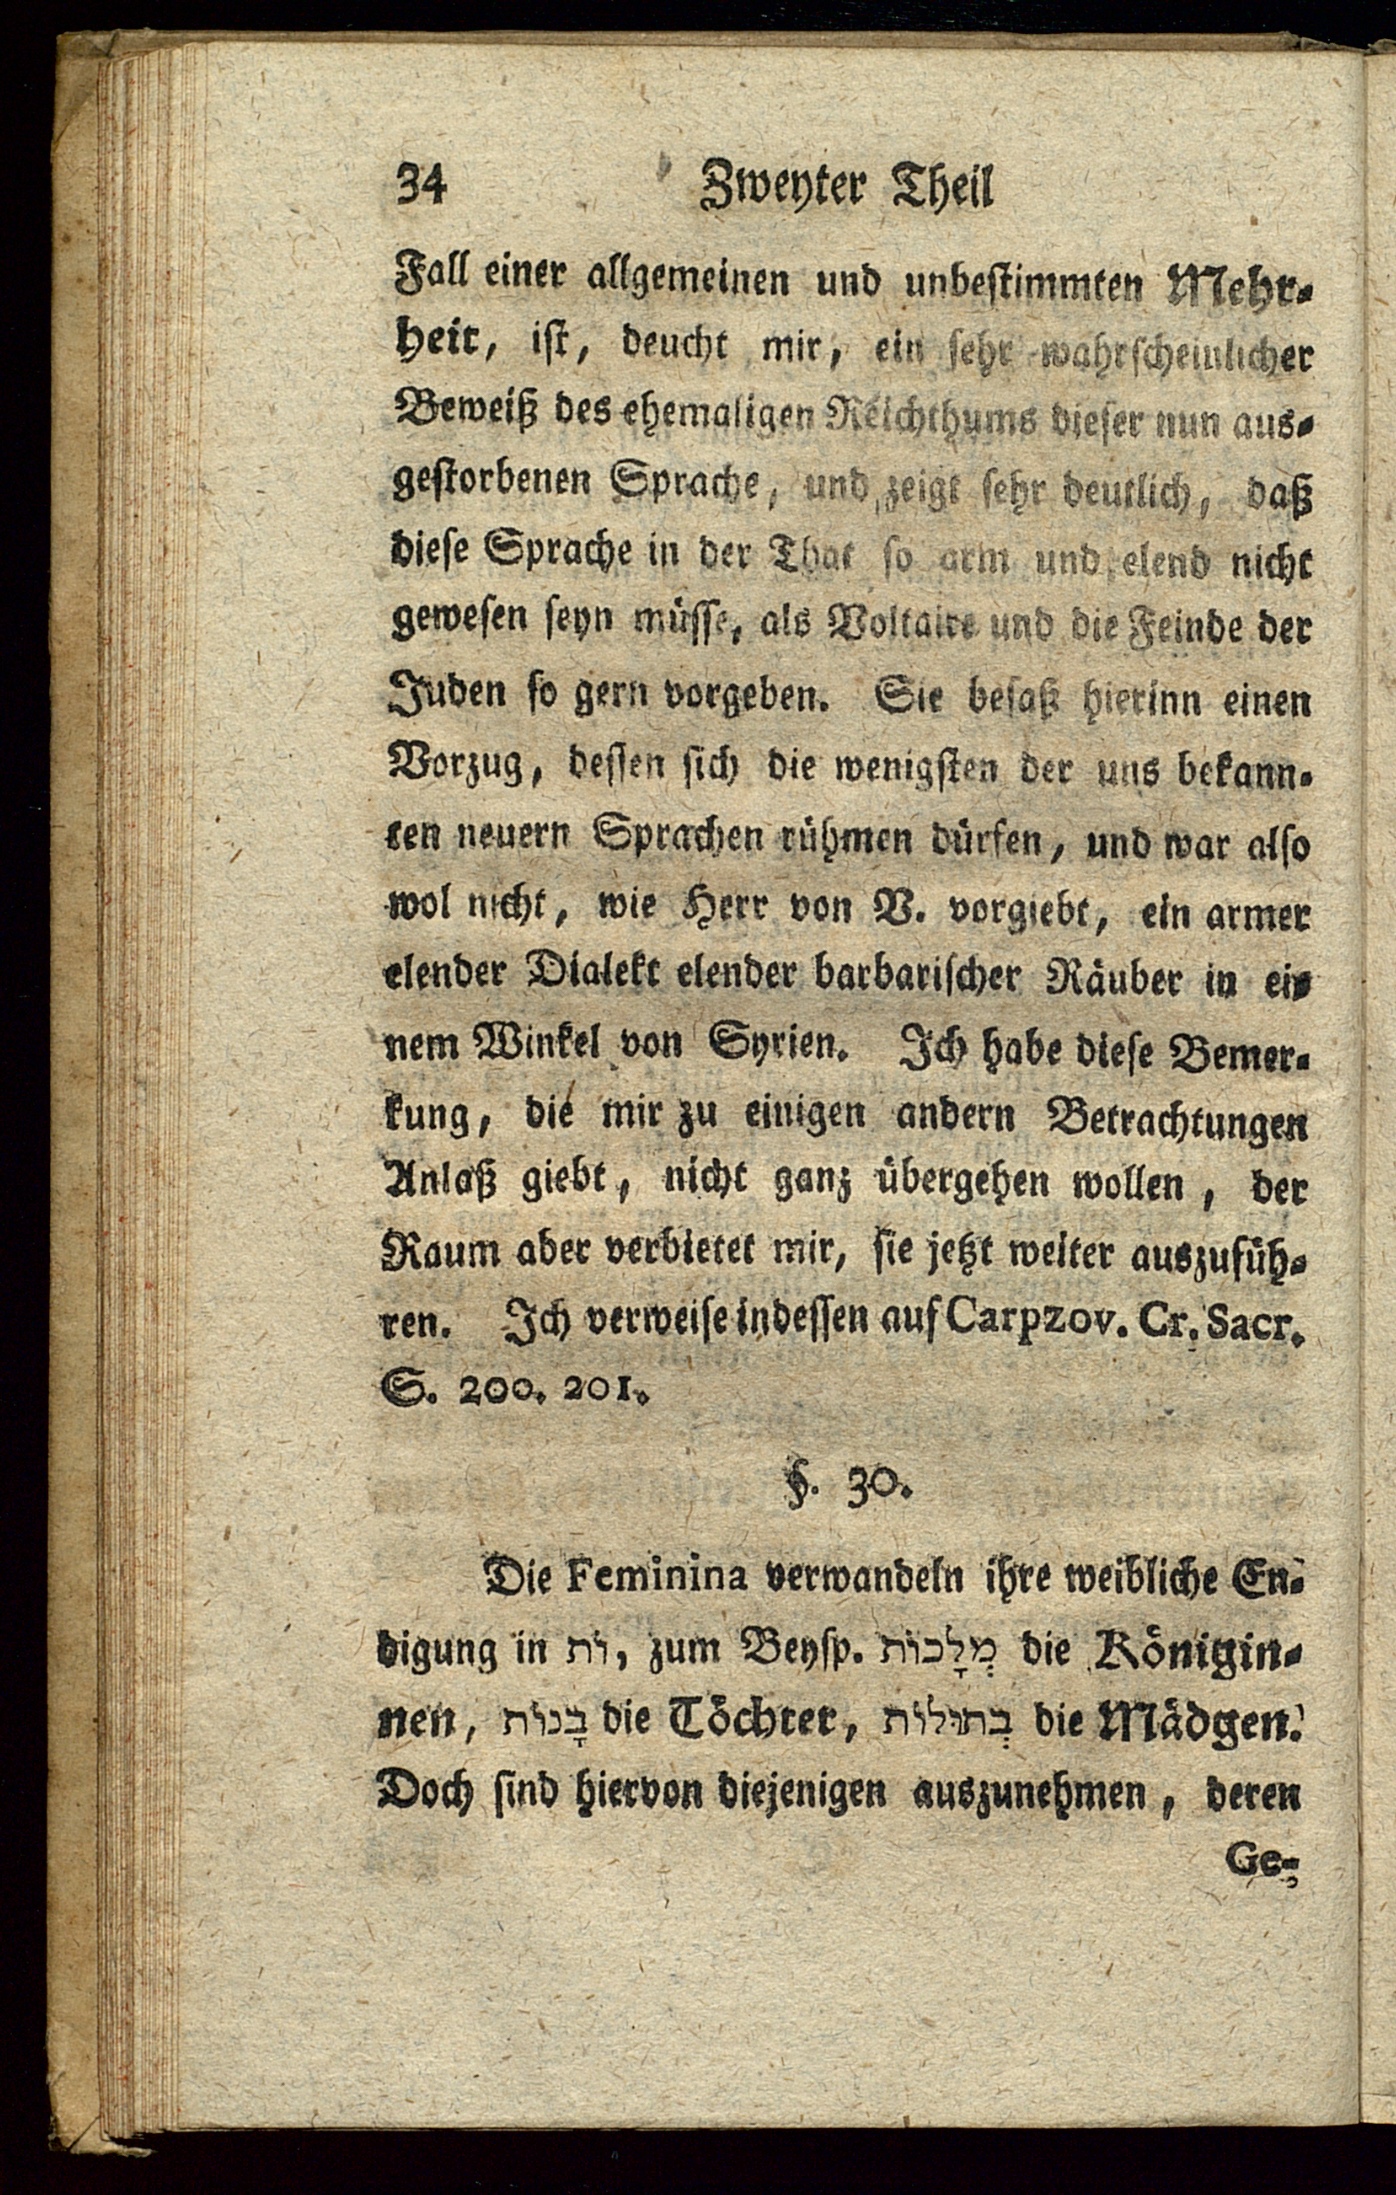 34 Zweyter Theil
Fall einer allgemeinen und unbestimmten Mehr-
heit, ist, deucht mir, ein sehr wahrscheinlicher
Beweiß des ehemaligen Reichthums dieser nun aus-
gestorbenen Sprache, und zeigt sehr deutlich, daß
diese Sprache in der That so arm und elend nicht
gewesen seyn müsse, als Voltaire und die Feinde der
Juden so gern vorgeben. Sie besaß hierinn einen
Vorzug, dessen sich die wenigsten der uns bekann-
ten neuern Sprachen rühmen dürfen, und war also
wol nicht, wie Herr von V. vorgiebt, ein armer
elender Dialekt elender barbarischer Räuber in ei-
nem Winkel von Syrien. Ich habe diese Bemer-
kung, die mir zu einigen andern Betrachtungen
Anlaß giebt, nicht ganz übergehen wollen, der
Raum aber verbietet mir, sie jetzt weiter auszufüh-
ren. Ich verweise indessen auf Carpzov. Cr. Sacr.
S. 200. 201.
§. 30.
Die Feminina verwandeln ihre weibliche En-
digung in וֹת, zum Beysp. מְלָכוֹת die Königin-
nen, בָּנוֹת die Töchter, בְּתוּלוֹת die Mädgen.
Doch sind hiervon diejenigen auszunehmen, deren
Ge-